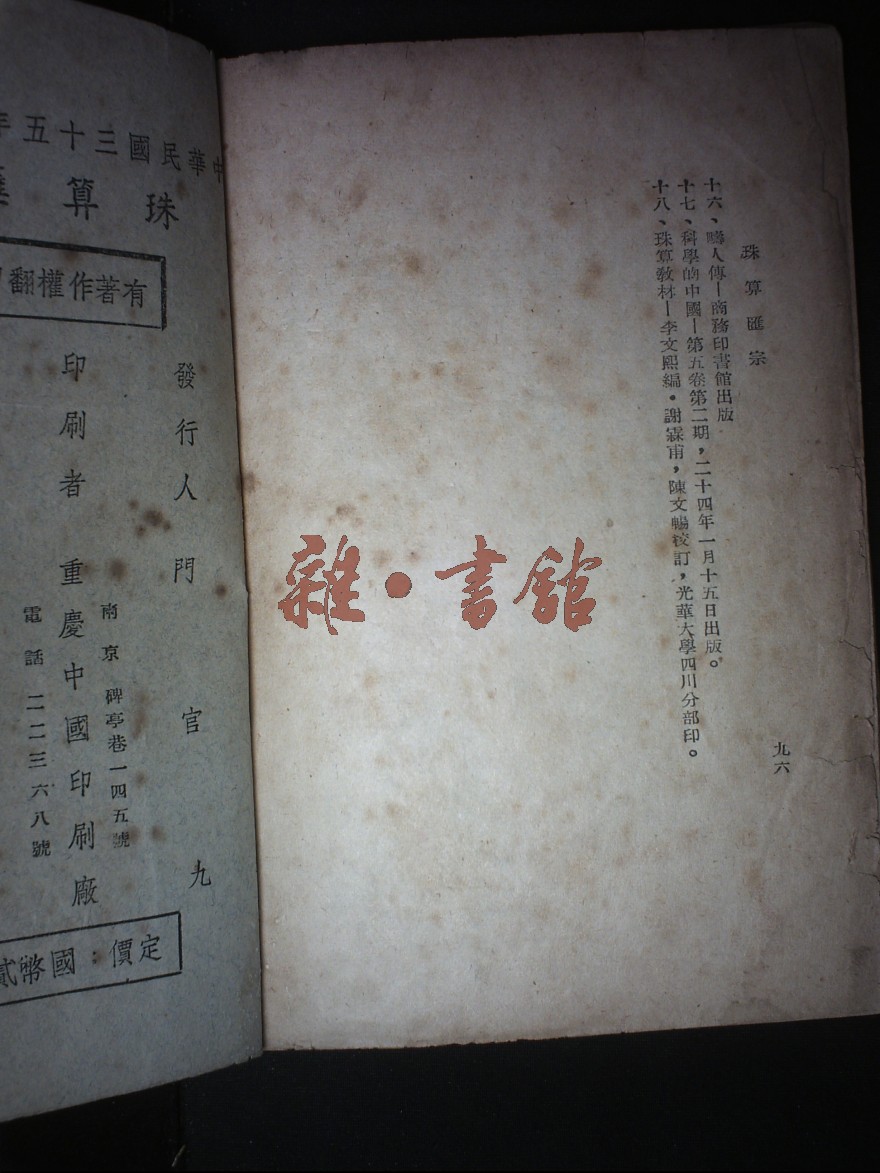 珠算匯宗
九六
十六、疇人傳—商務印書館出版
十七、科學的中國—第五卷第二期，二十四年一月十五日出版。
十八、珠算教材—李文熙編。謝霖甫，陳文暢校訂，光華大學四川分部印。
雜·書館
中華民國三十五年
珠算
有著作權翻
發行人門官九
印刷者 重慶中國印刷廠
南京碑亭巷一四五號
電話二二三六八號
定價：國幣貳